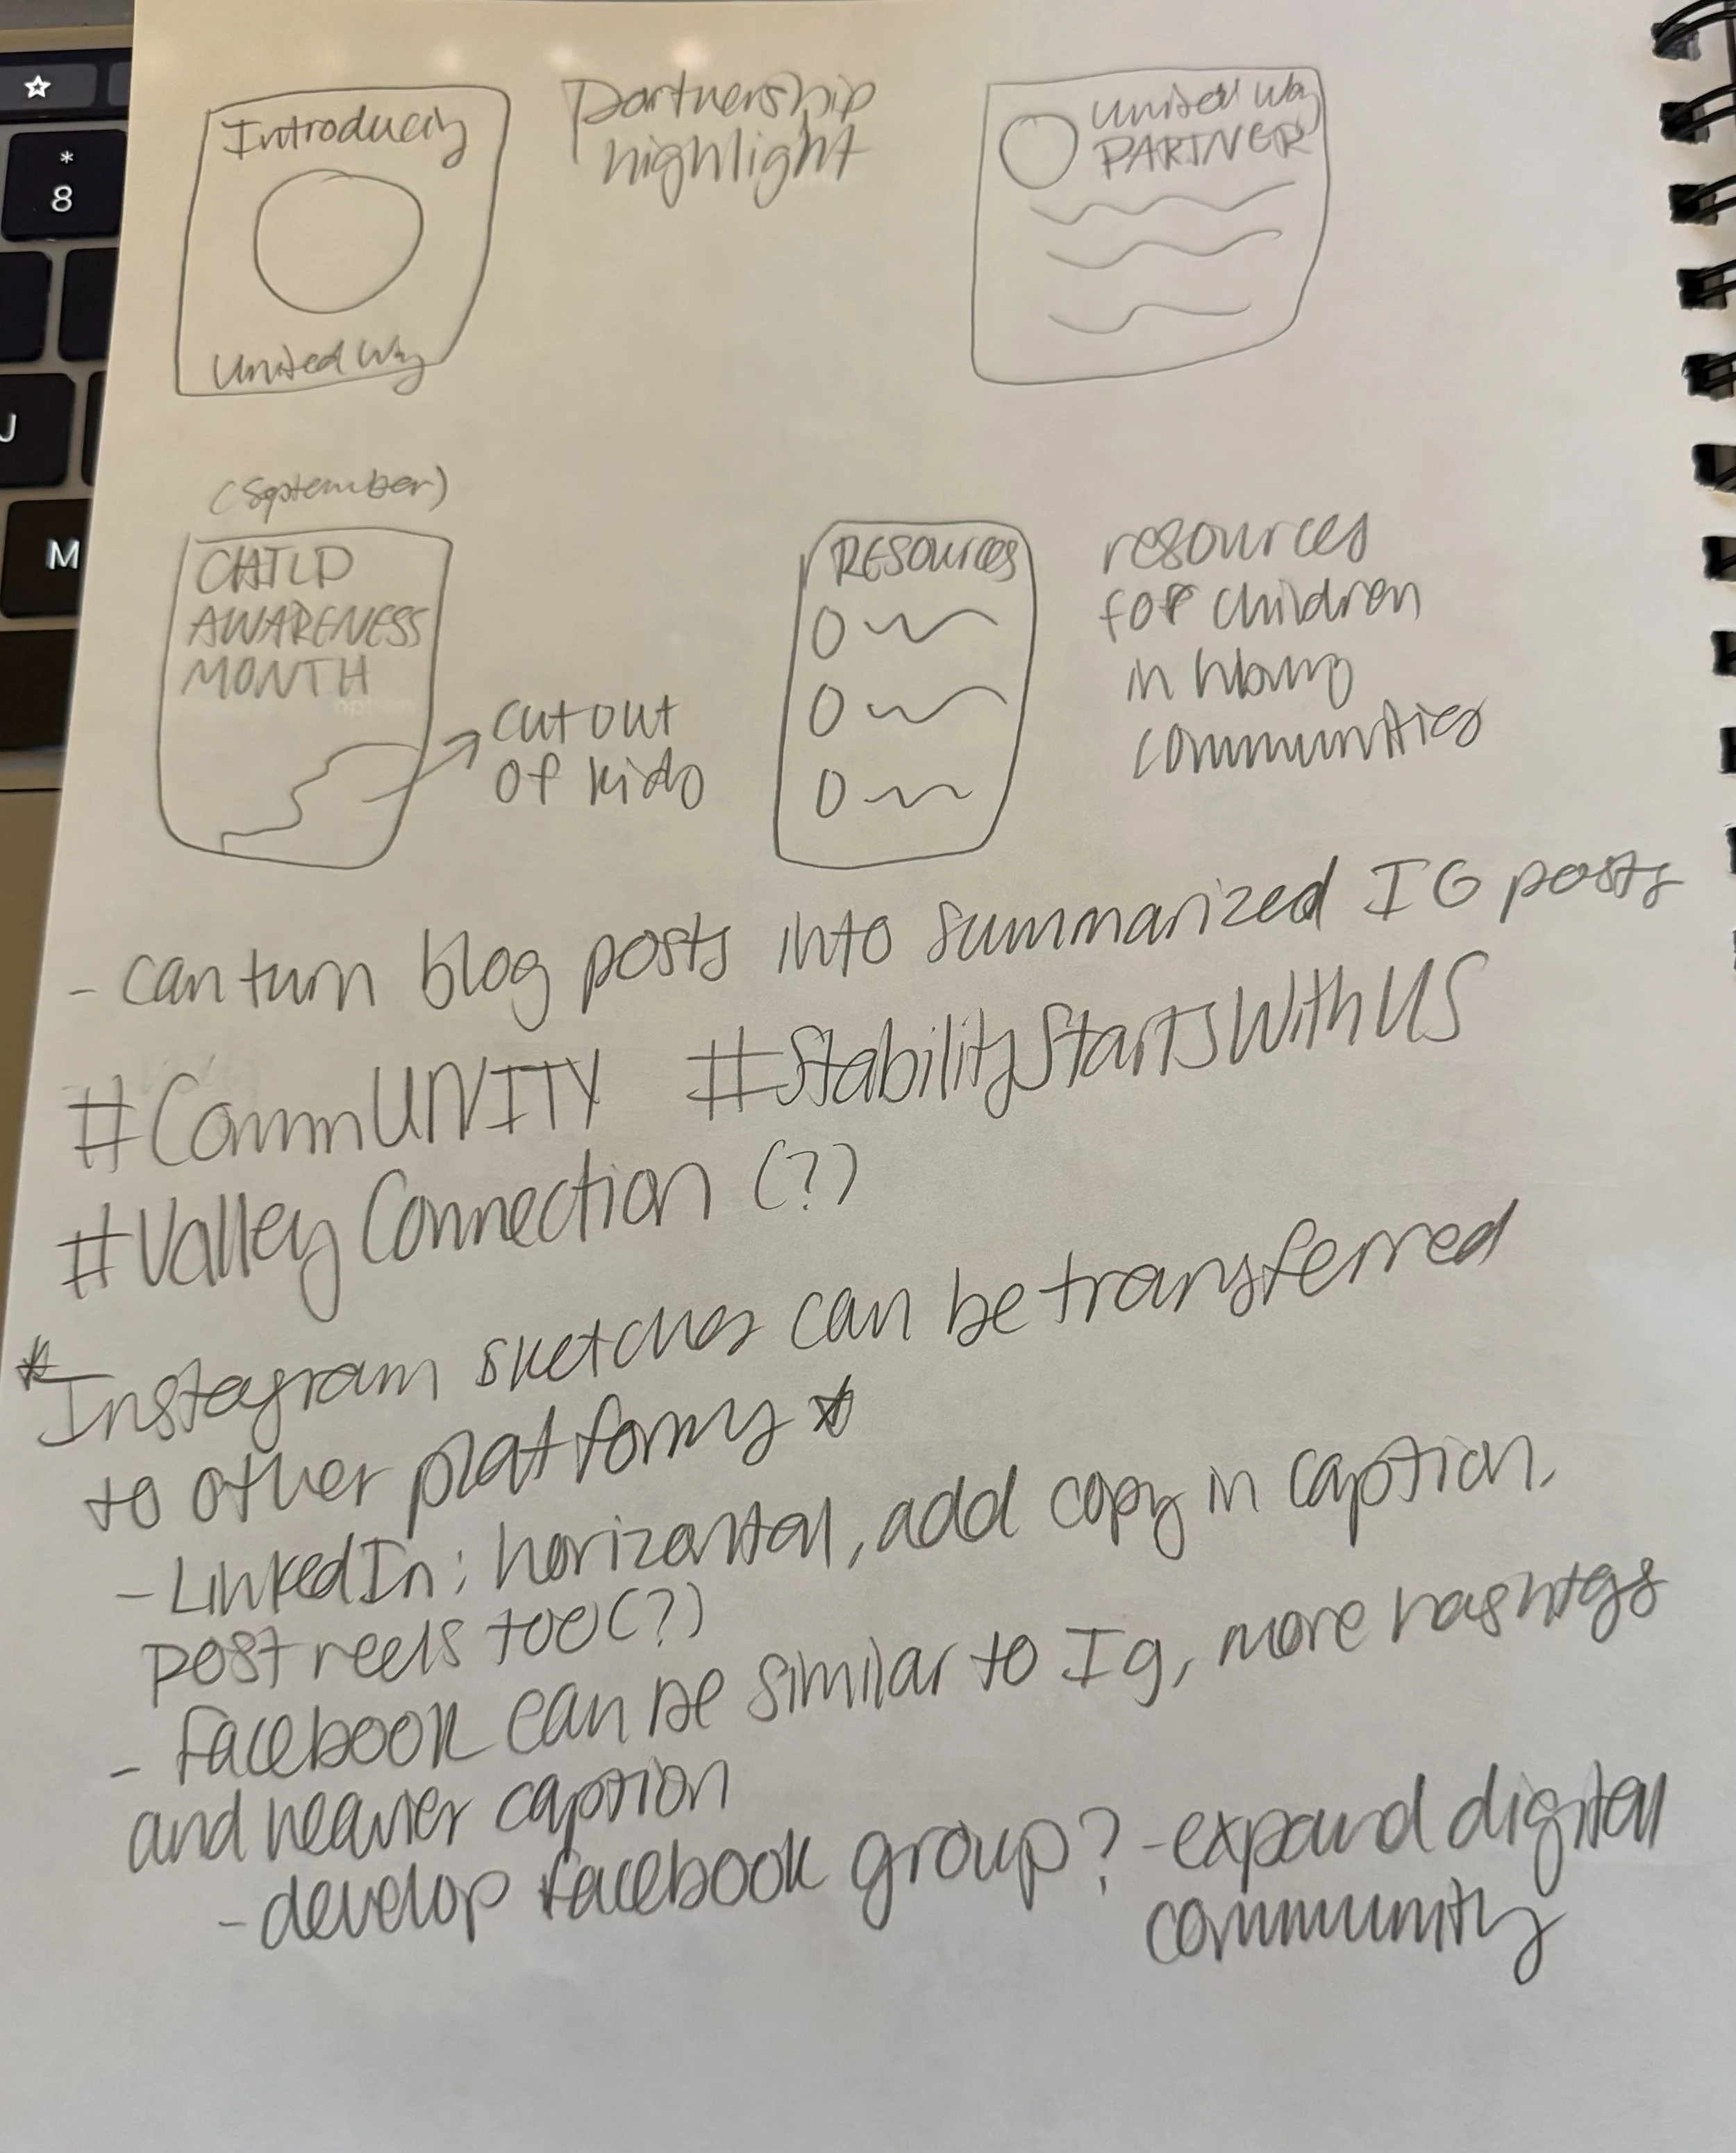 Introducing
United Way
partnership
highlight
United Way
PARTNER
(September)
CHILD
AWARENESS
MONTH
cutout
of kids
RESOURCES
resources
for children
in
communities
- can turn blog posts into summarized IG posts
#CommUNITY #StabilityStartsWithUS
#ValleyConnection (?)
*Instagram sketches can be transferred
to other platforms*
- LinkedIn: horizontal, add copy in caption,
post reels too(?)
- Facebook can be similar to Ig, more hashtgs
and heavier caption
- develop facebook group? - expand digital
community
*
8
J
M